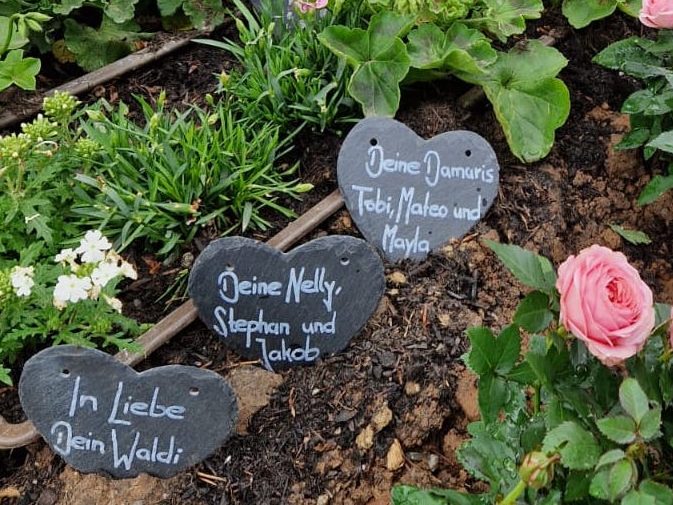 Deine Damaris
Tobi, Mateo und
Mayla
Deine Nelly,
Stephan und
Jakob
In Liebe
Dein Waldi